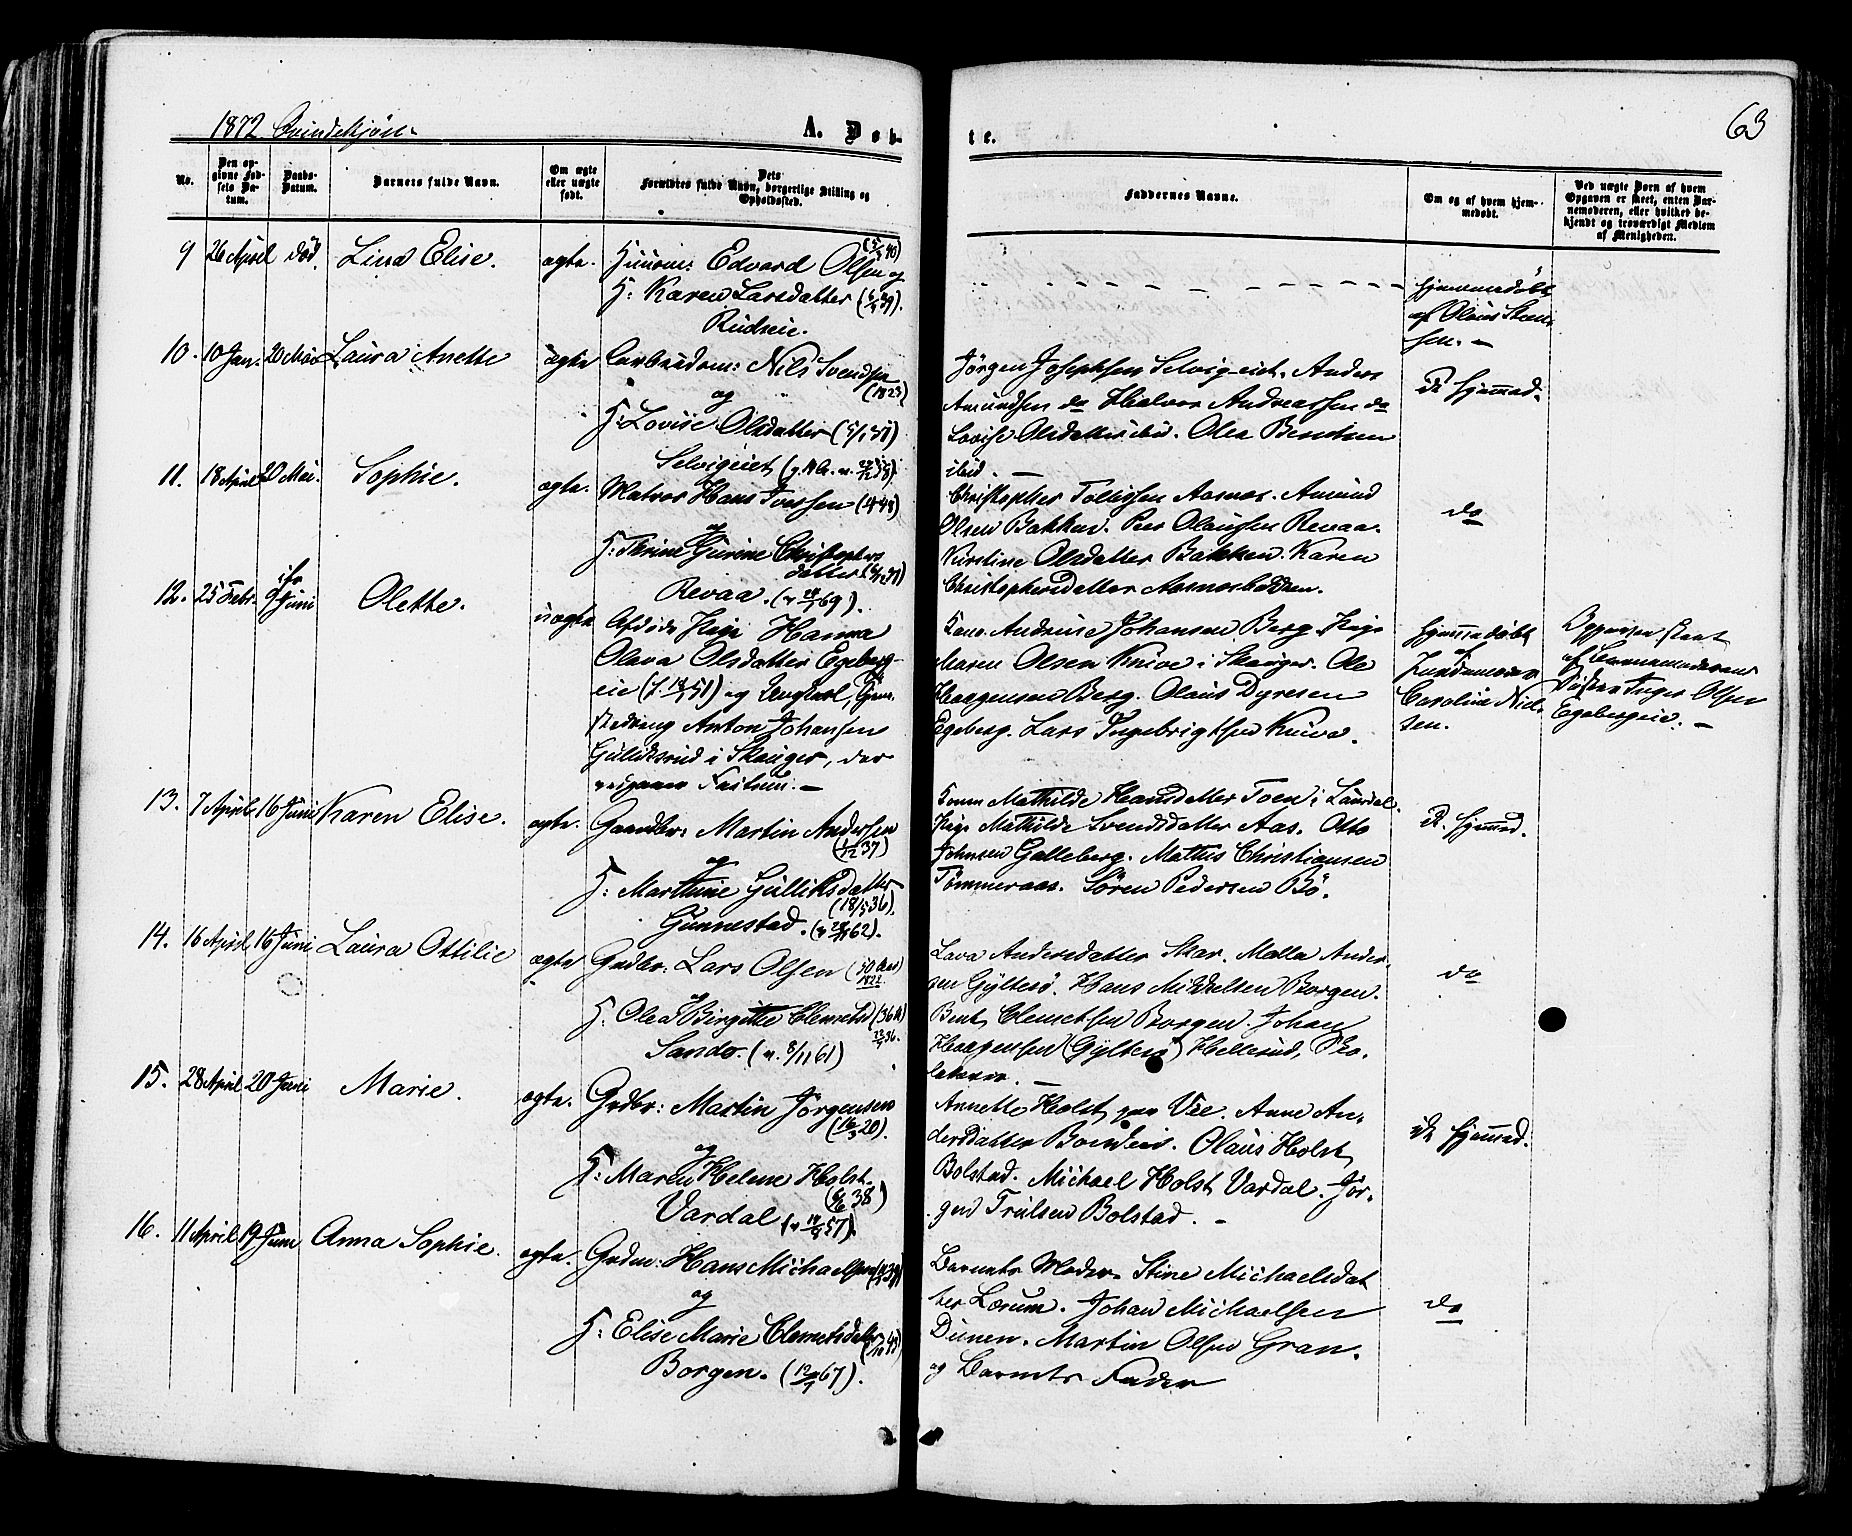 1872 Qvindekjön.
A. Døb-
te.
63
No.
Den op-
givne Fød-
sels Da-
tum.
Daabs-
Datum.
Barnets fulde Navn.
Om ægte
eller uægte
født.
Dets
Forældres fulde Navn, borgerlige Stilling og
Opholdssted.
Faddernes Navne.
Om og af hvem hjem-
medøbt.
Ved uægte Born af hvem
Opgaven er skeet, enten Bar-
nemoderen, eller hvilket be-
kjendt og troværdigt Medlem
af Menigheden.
9 26 April död. Lina Elise. ægte.
Edvard Olsen og
H: Karen Larsdatter
Rudeeie.
Hjemmedöbt
af Olaus
sen. -
10. 10 Jan. 20 Mai Laura Anette ægte
Arbeidsm: Nils Svendsen
(1823)
og
H: Lovise Olsdatter (5/1 31)
Selvigeiet
Jörgen Josephsen Selvigeiet. Anders
Amundsen do Halvor Andreassen do
Lovise Olsdatter ibid. Olea Bentsen
ibid. -
ik hjemmed.
11. 18 April 20 Mai. Sophie. ægte.
Matros Hans Iversen
og
H: Thrine Gurine Christophers
datter
Revaa.
Christopher Tollefsen Aasnæs. Amund
Olsen Bakken. Peer Olaussen Revaa.
Kirstine Olsdatter Bakken. Karen
Christophersdatter Aasnæsbakken.
do
12. 25 Febr. 9 Juni Olette. uægte
Afdöde Pige Hanna
Olava Olsdatter Egeberg-
eie og Ungkarl,
Anton Johansen
Gulliksrud i Skauger, der
Fastum. -
Kone Andrine Johansen Berg. Pige
Maren Olsen Knive i Skauger. Ole
Haagensen Berg. Olaus Dyresen
Egeberg. Lars Ingebrigtsen Knive.
Hjemmedöbt
af
Jordemoder
Caroline Niel-
sen.
Opgaven skeet
af Barnemoderens
Söster Inger Olsen
Egebergeie. -
13. 7 April 16 Juni Karen Elise. ægte.
Gaardbr: Martin Andersen
(1/12 37)
og
H: Marthine Gulliksdatter
(18/5 36)
Gunnestad.
Kone Mathilde Hansdatter Toen i Laurdal.
Pige Mathilde Svendsdatter Aas. Otto
Johnsen Galleberg. Mathis Christiansen
Tömmeraas. Sören Pedersen Bö.
ik hjemmed.
14. 16 April 16 Juni Laura Ottilie ægte
Grdbr: Lars Olsen (50 Aar)
1822
og
H: Olea Birgitte Clemetsd (36 A)
Sando. (v. 8/11 61)
Lava Andersdatter Skar. Malla Ander-
sen Gyltesö. Hans Mikkelsen Borgen.
Bent Clemetsen Borgen. Johan
Haagensen (Gyltesö) Hellerud, Sko-
lelærer. -
do
15. 28 April 20 Juni Marie. ægte.
Grdbr: Martin Jörgensen
(16/3 20).
og
H: Maren Helene Holst.
Vardal
Annette Holst paa Vee. Anne An-
dersdatter. Olaus Holst
Bolstad. Michael Holst Vardal. Jör-
gen Trulsen Bolstad. -
ik hjemmed.
16. 11 April 19 Juni Anna Sophie. ægte.
Grdm: Hans Michaelsen
og
H: Elise Marie Clemetsdatter
Borgen. (12/7 67).
Barnets Moder. Stine Michaelsdat
ter Lærum. Johan Michaelsen
Dunen. Martin Olsen Gran.
og Barnets Fader
do